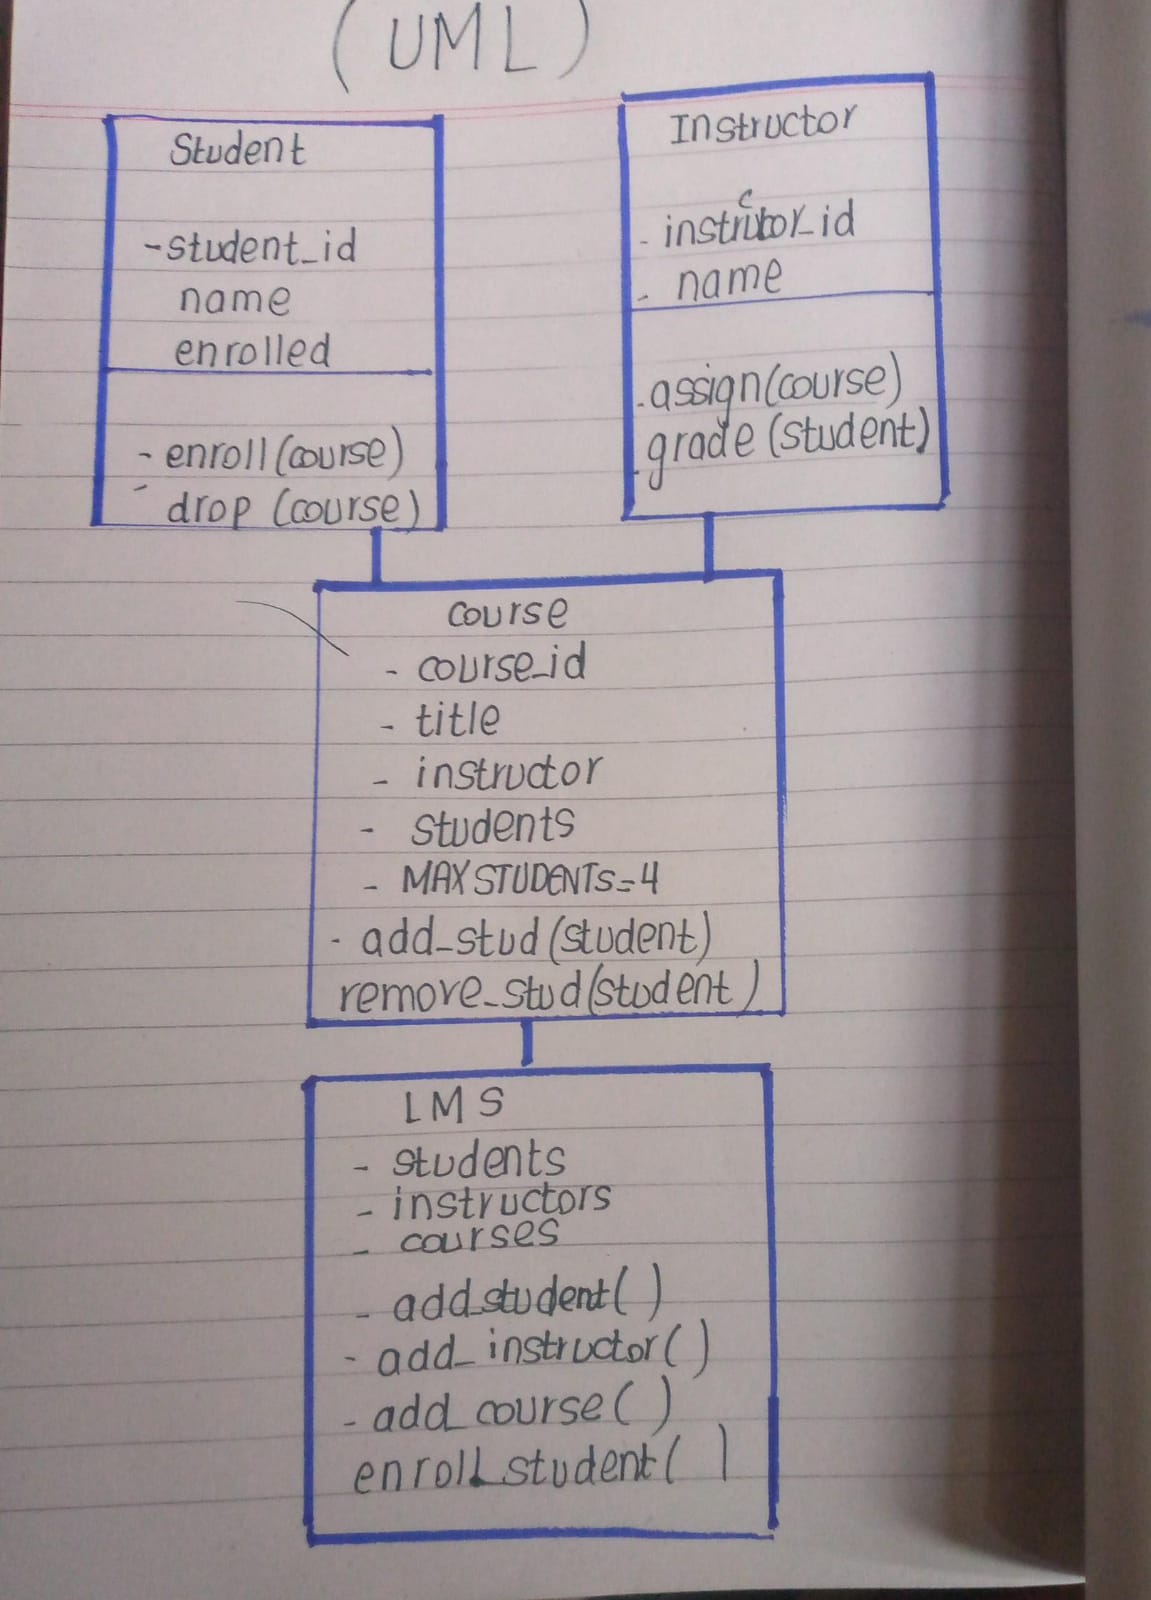 (UML)
Student
-student_id
name
enrolled
- enroll(course)
- drop (course)
Instructor
- instructor_id
- name
.assign(course)
.grade (student)
course
- course_id
- title
- instructor
- students
- MAX STUDENTS=4
- add_stud(student)
remove_stud(student)
LMS
- students
- instructors
- courses
- add_student( )
- add_instructor( )
- add_course( )
enroll_student( )